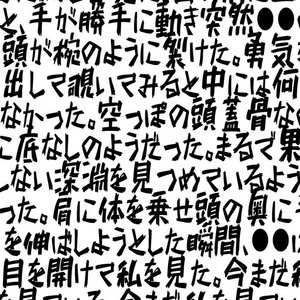 と、手が勝手に動き突然●●
頭が椀のように裂けた。勇気
出して覗いてみると中には何
なかった。空っぽの頭蓋骨な
に底なしのようだった。まるで果
しない深淵を見つめているよう
った。肩に体を乗せ頭の奥に手
を伸ばしようとした瞬間、●●は
目を開けて私を見た。今まだ